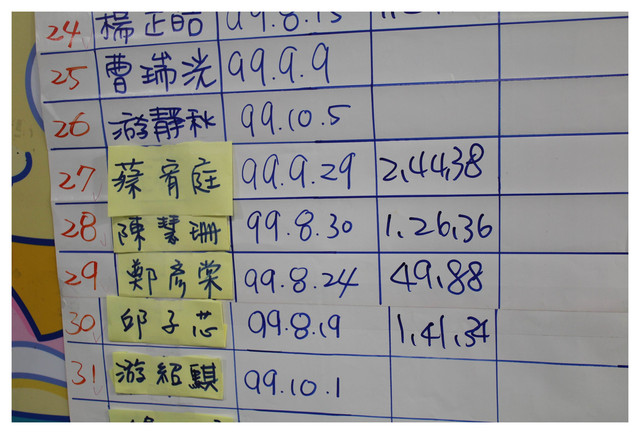 24 楊正皓 99.8.13
25 曹瑞洸 99.9.9
26 游靜秋 99.10.5
27 蔡宥庭 99.9.29 2,44,38
28 陳慧珊 99.8.30 1,26,36
29 鄭彥棠 99.8.24 49,88
30 邱子芯 99.8.19 1,41,34
31 游紹騏 99.10.1